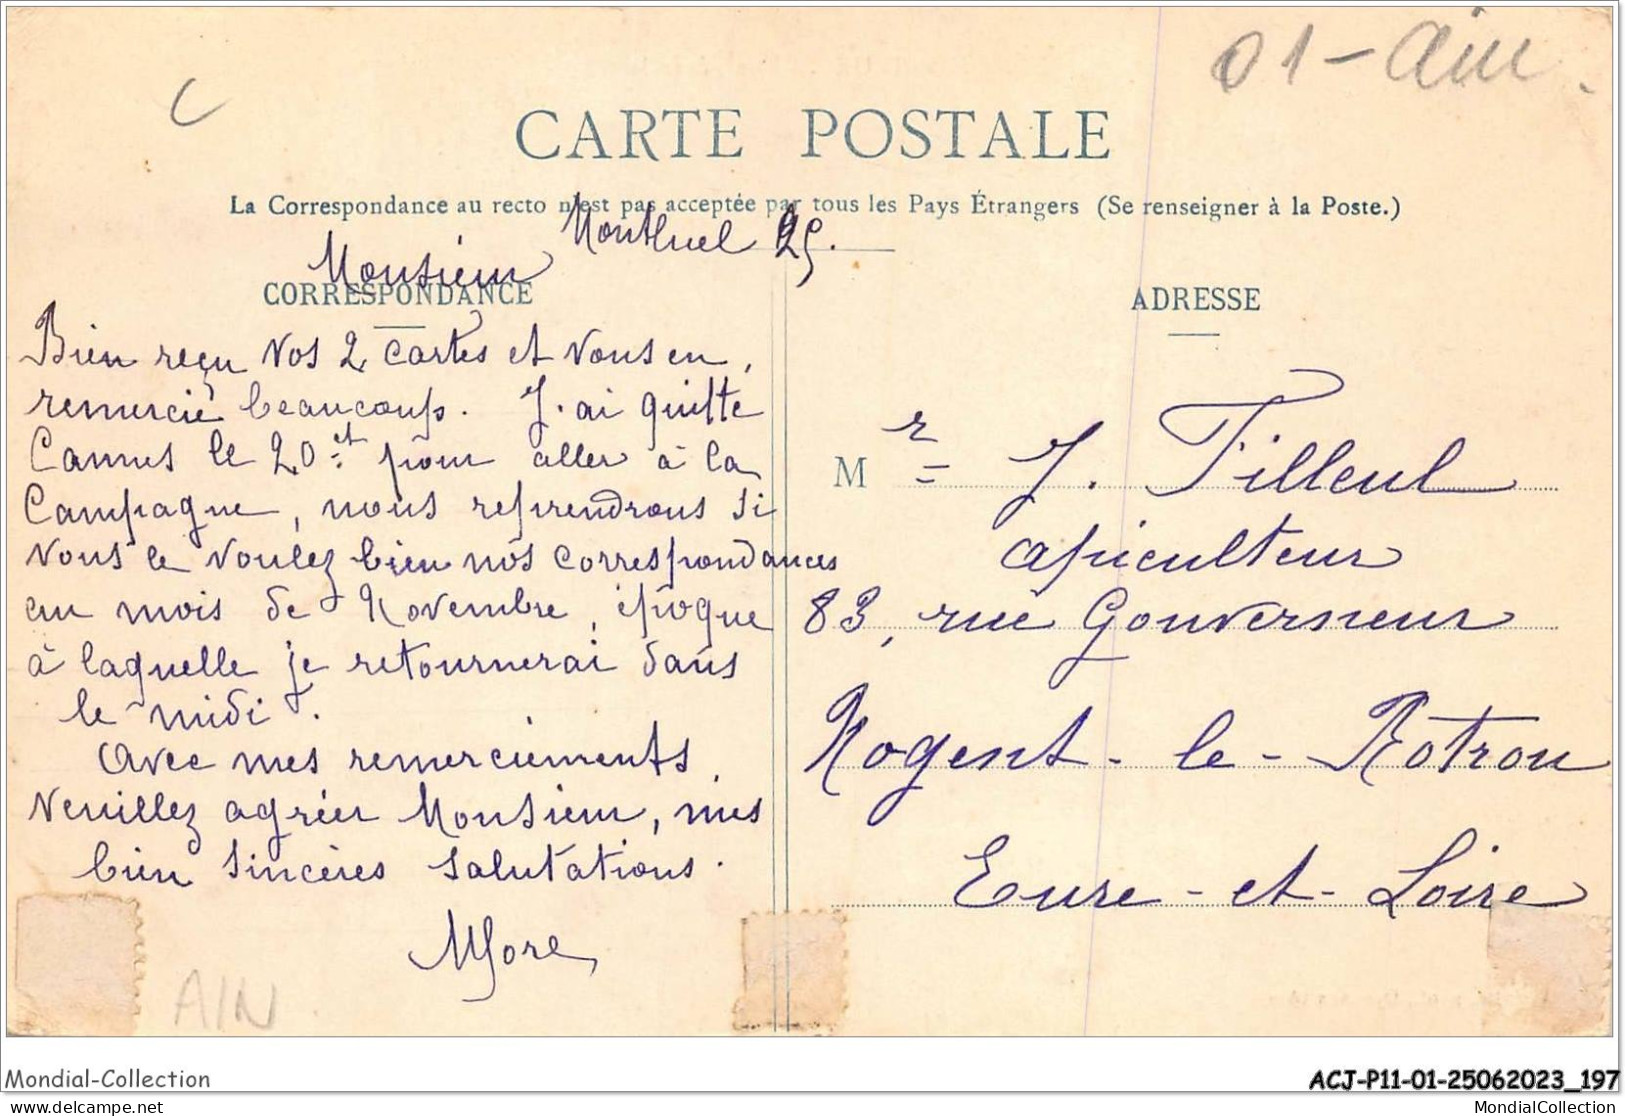 01 - Ain.
CARTE POSTALE
La Correspondance au recto n'est pas acceptée par tous les Pays Étrangers (Se renseigner à la Poste.)
Montluel 25.
Monsieur
CORRESPONDANCE
Bien reçu vos 2 cartes et vous en
remercie beaucoup. J. ai quitté
Cannes le 20 ct pour aller à la
Campagne, nous reprendrons si
vous le voulez bien nos correspondances
au mois de Novembre, époque
à laquelle je retournerai dans
le midi.
Avec mes remerciements,
Veuillez agréer Monsieur, mes
bien sincères salutations.
ADRESSE
M r J. Tilleul
apiculteur
83, rue Gouverneur
Nogent-le-Rotrou
Eure-et-Loire
AIN
Mondial-Collection
ACJ-P11-01-25062023_197
delcampe.net
MondialCollection